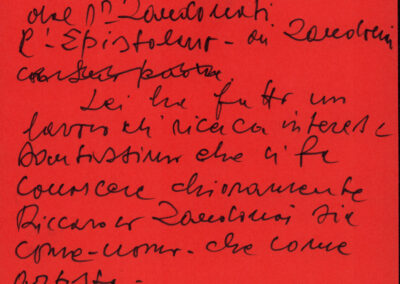 del Dr Zandonati
l'-Epistolario- di Zandonai
Lei ha fatto un
lavoro di ricerca interes
santissimo che ci fa
conoscere chiaramente
Riccardo Zandonai sia
come-uomo-che come
artista-